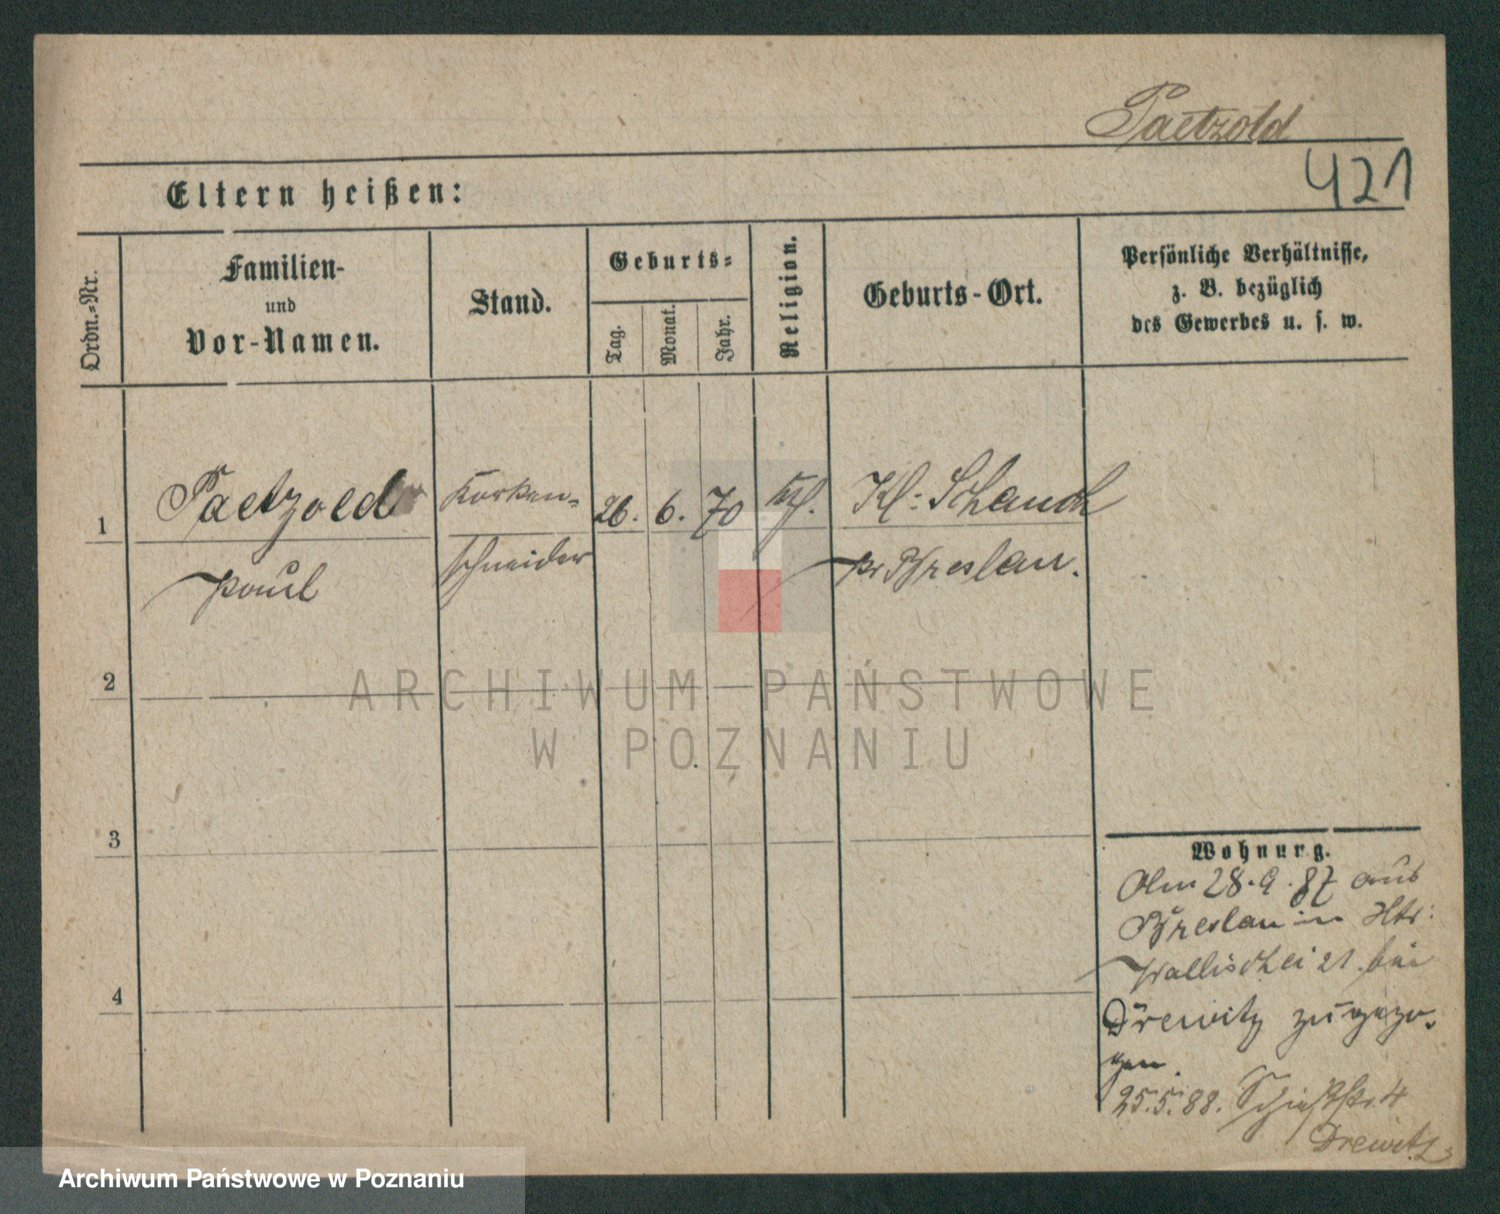 Paetzold
421
Eltern heißen:
Ordn.-Nr.
Familien-
und
Vor-Namen.
Stand.
Geburts-
Tag.
Monat.
Jahr.
Religion.
Geburts-Ort.
Persönliche Verhältnisse,
z. B. bezüglich
des Gewerbes u. s. w.
1
Paetzold
Paul
Korken-
schneider
26. 6. 70
Kl: Schauch
pr Breslau.
2
3
4
ARCHIWUM PAŃSTWOWE
W POZNANIU
Wohnung.
Am 28.9.87 aus
Breslau in Htr:
Wallischei 21. bei
Drewitz zugezo-
gen.
25.5.88. Schießstr. 4
Drewitz
Archiwum Państwowe w Poznaniu